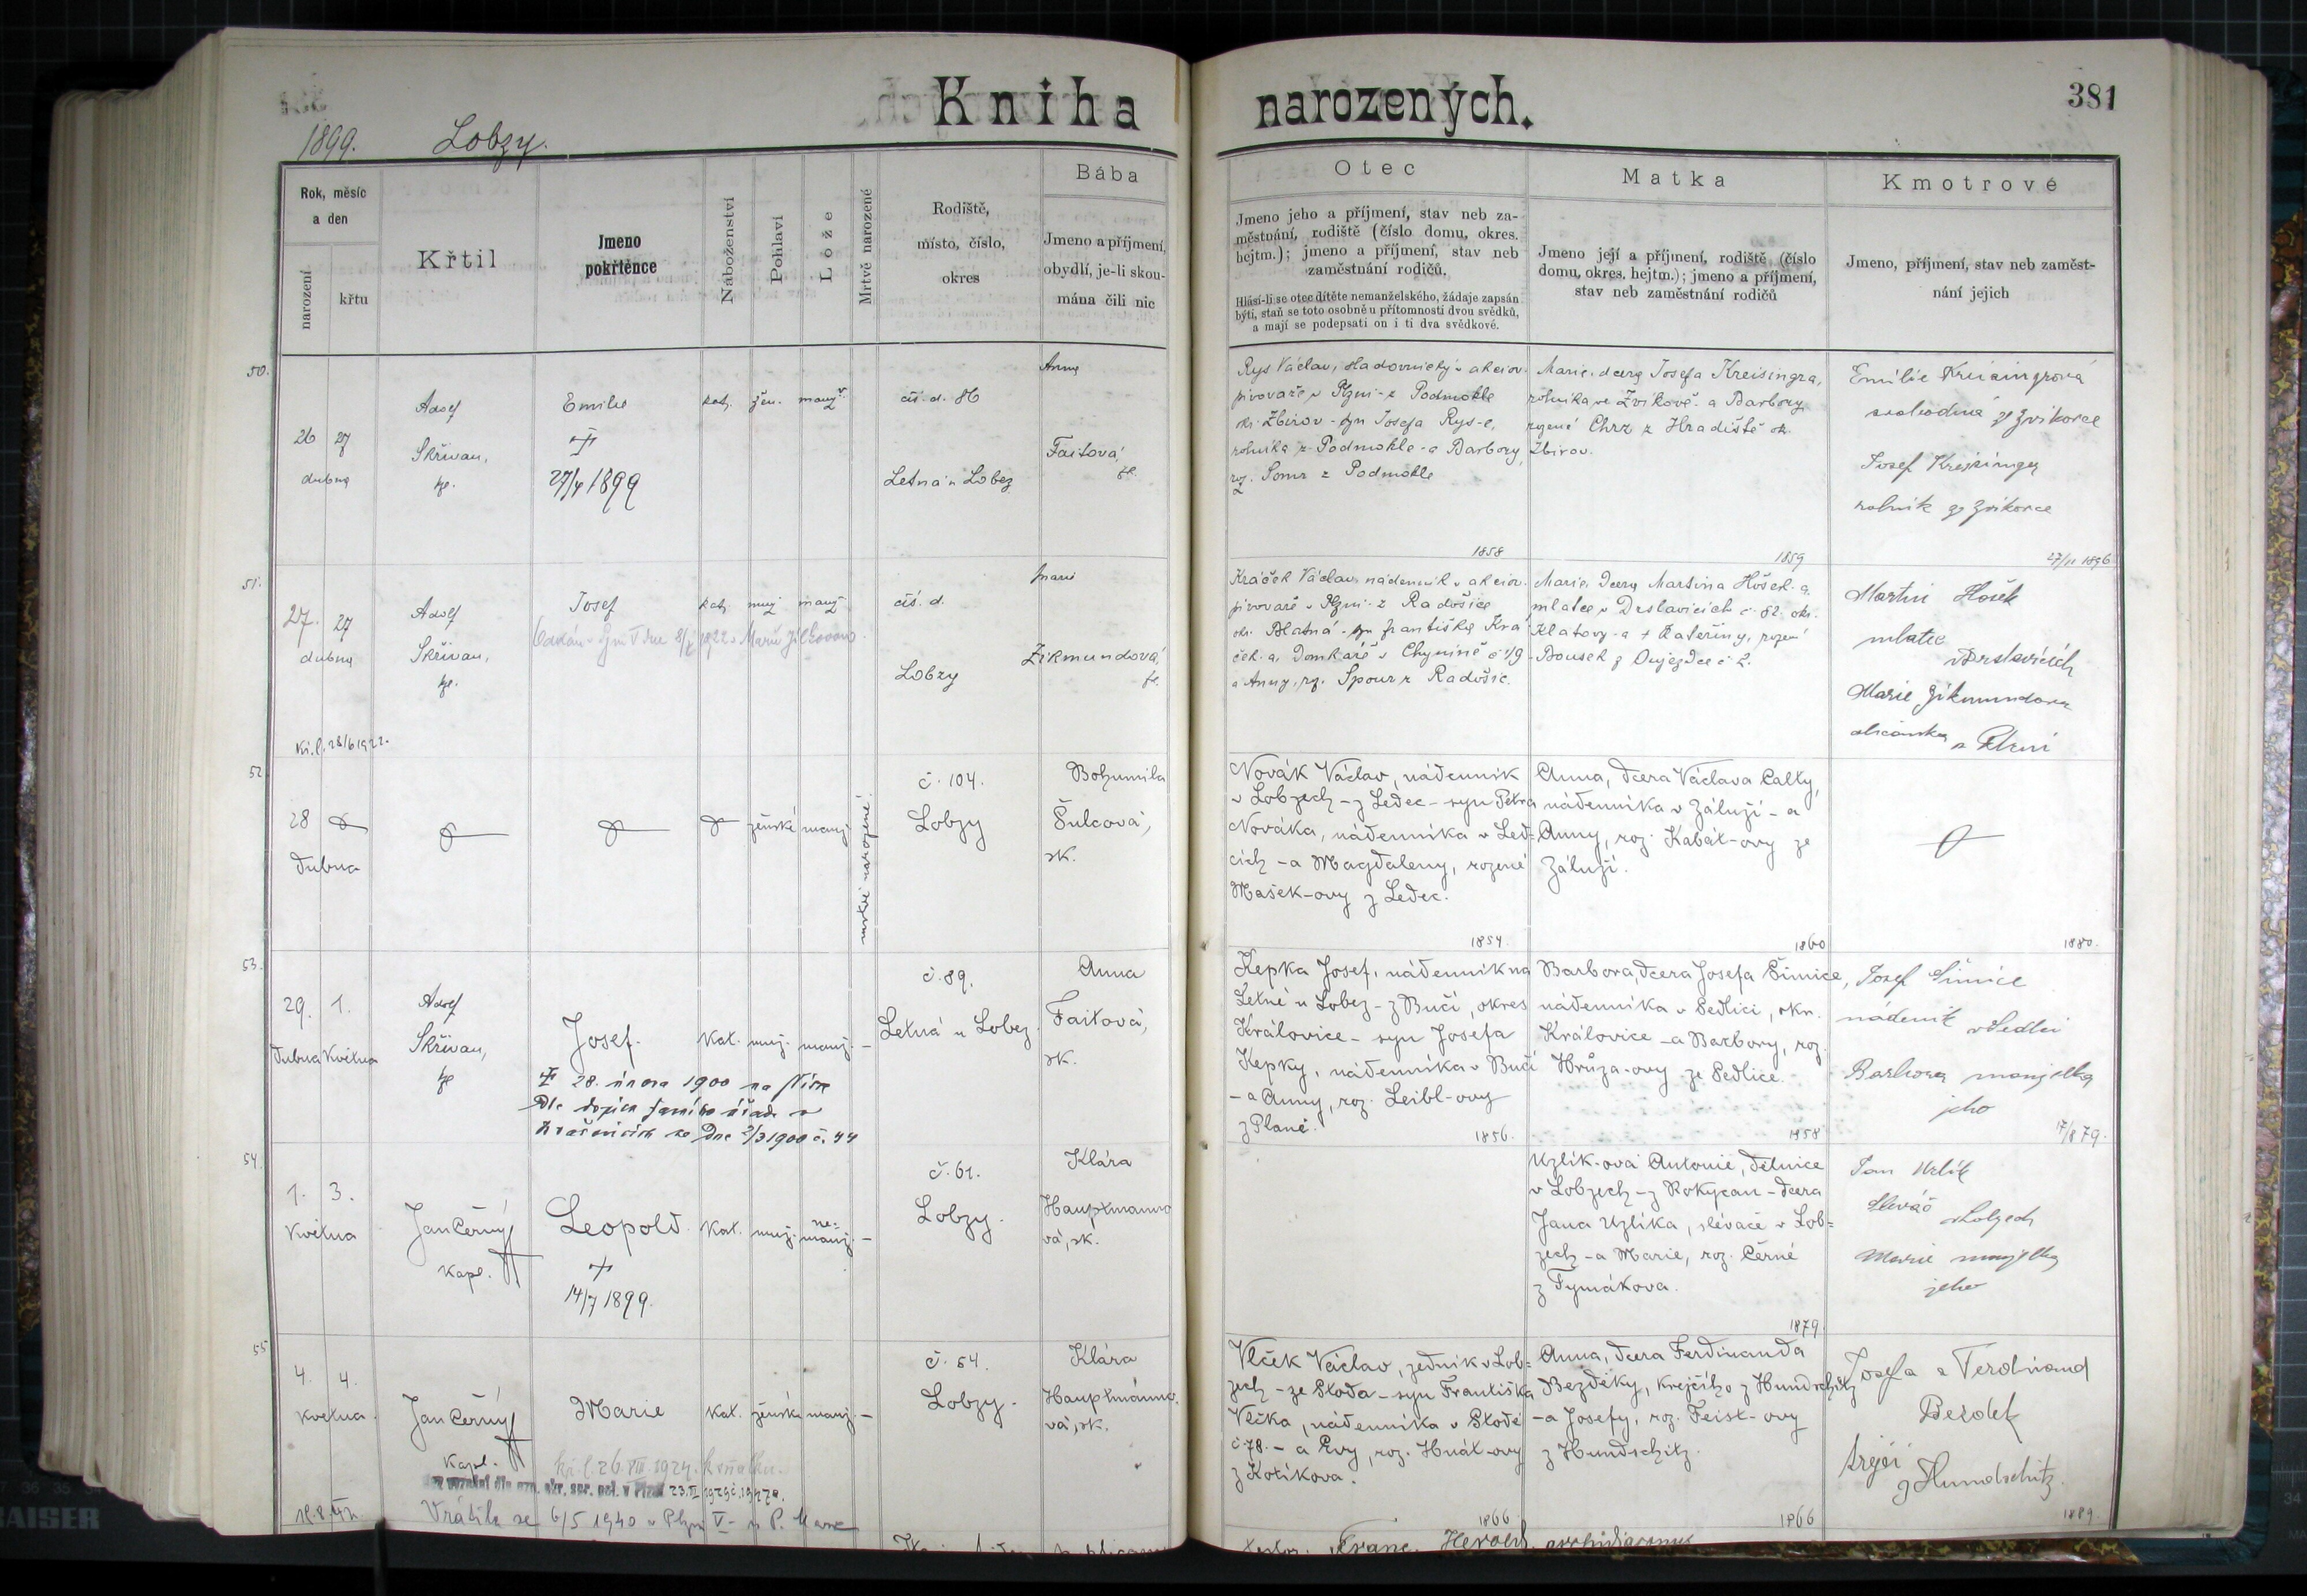 Kniha narozených.
381
1899. Lobzy.
Rok, měsíc a den
narození
křtu
Křtil
Jmeno pokřtěnce
Náboženství
Pohlaví
Lože
Mrtvě narozené
Rodiště,
místo, číslo,
okres
Bába
Jmeno a příjmení,
obydlí, je-li skou-
mána čili nic
Otec
Jmeno jeho a příjmení, stav neb za-
městnání, rodiště (číslo domu, okres.
hejtm.); jmeno a příjmení, stav neb
zaměstnání rodičů.
Hlásí-li se otec dítěte nemanželského, žádaje zapsán
býti, staň se toto osobně u přítomnosti dvou svědků,
a mají se podepsati on i ti dva svědkové.
Matka
Jmeno její a příjmení, rodiště (číslo
domu, okres. hejtm.); jmeno a příjmení,
stav neb zaměstnání rodičů
Kmotrové
Jmeno, příjmení, stav neb zaměst-
nání jejich
50.
26 27
dubna
Adolf
Skřivan,
kp.
Emilie
27/4 1899
kat. žen. manž.
čís. d. 86
Letná u Lobez
Anna
Faitová,
zk.
Rys Václav, sladovnický v akciov.
pivovaře v Plzni - z Podmokle
okr. Zbirov - syn Josefa Rys-e,
rolníka z Podmokle - a Barbory,
roz. Somr z Podmokle
1858
Marie, dcera Josefa Kreisingra,
rolníka ve Zvíkově - a Barbory
rozené Chrz z Hradiště ok.
Zbirov.
1859
Emilie Kreisingrová
svobodná z Zvíkovce
Josef Kreisinger
rolník ze Zvíkovce
27/11 1896
51.
27. 27
dubna
Adolf
Skřivan,
kp.
Josef
kat. muž. manž.
čís. d.
Lobzy
Zikmundová,
zk.
Kř. l. 28/6 1922.
Kráček Václav, nádenník v akciov.
pivovaře v Plzni - z Radošice
okr. Blatná - syn Františka Krá
ček-a, Domkáře v Chynině č 19
a Anny, roz. Spour z Radošic.
Marie, dcera Martina Hošek-a,
mlatce v Drslavicích č. 82. okr.
Klatovy - a + Kateřiny, rozené
Bousek z Oujezdce č 2.
Martin Hošek
mlatec
v Drslavicích
Marie Zikmundova
v Plzni
52
28
Dubna
ženské manž.
mrtvě narozené!
č. 104.
Lobzy
Bohumila
Šulcová,
zk.
Novák Václav, nádenník
v Lobzech - z Ledec - syn Petra
Nováka, nádenníka v Led=
cích - a Magdaleny, rozené
Mašek-ovy z Ledec.
1854.
Anna, dcera Václava Calty,
nádenníka v Záluží - a
Anny, roz. Kabát-ovy ze
Záluží.
1860
1880.
53.
29. 1.
Dubna Května
Adolf
Skřivan,
kp
Josef.
Kat. muž. manž. -
28. února 1900
2/3 1900 č. 44
č. 89.
Letná u Lobez.
Anna
Faitová,
zk.
Kepka Josef, nádenník na
Letné u Lobez - z Bučí, okres
Královice - syn Josefa
Kepky, nádenníka v Bučí
- a Anny, roz. Leibl-ovy
z Plané.
1856.
Barbora, dcera Josefa Šimice,
nádenníka v Sedlici, okr.
Královice - a Barbory, roz.
Hrůza-ovy ze Sedlice.
1858
Josef Šimice
nádeník v Sedlci
Barbora manželka
jeho
17/8 79.
54.
1. 3.
Května
Jan Černý
Kapl.
Leopold
14/7 1899.
Kat. muž. ne=
manž. -
č. 61.
Lobzy.
Klára
Hauptmanno
vá, zk.
Uzlík-ová Antonie, dělnice
v Lobzech - z Rokycan - dcera
Jana Uzlíka, slévače v Lob=
zech - a Marie, roz. Černé
z Tymákova.
1879.
Jan Uzlík
slevač v Lobzech
Marie manželka
jeho
55
4. 4.
Května.
Jan Černý
Kapl.
Marie
Kat. ženské manž. -
č. 54.
Lobzy.
Klára
Hauptmanno.
vá, zk.
Vrátila se 6/5 1940 v Plzni V
Vlček Václav, zedník v Lob=
zech - ze Stoda - syn Františka
Vlčka, nádenníka v Stodě
č. 78. - a Evy, roz. Hnát-ovy
z Kotíkova.
1866
Anna, dcera Ferdinanda
Bezděky, krejčího z Hundschitz
- a Josefy, roz. Feist-ovy
z Hundschitz.
1866
Josefa a Ferdinand
krejčí
z Hundschitz.
1889.